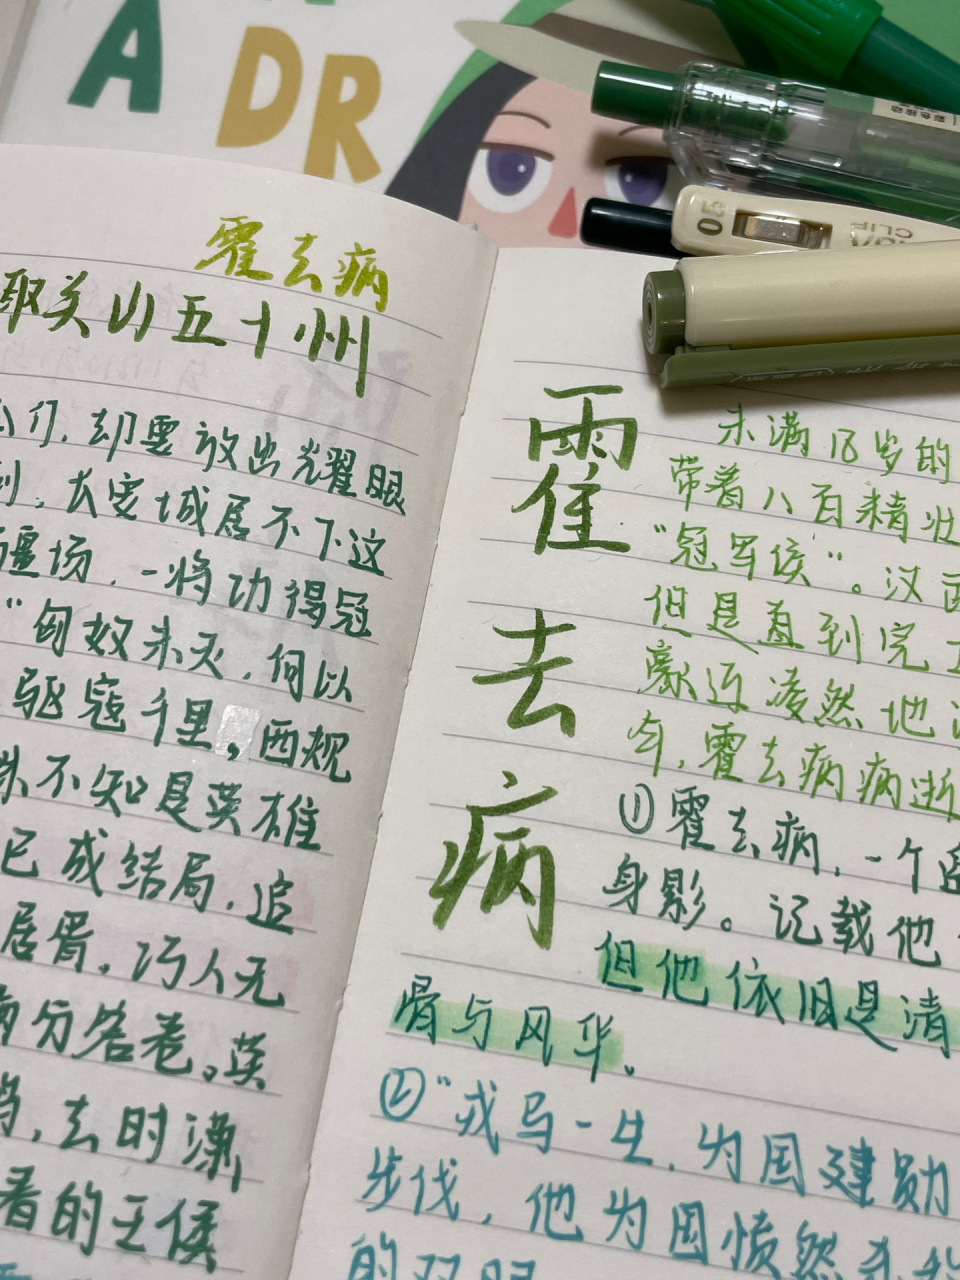 A DR
CLIP
霍去病
取关山五十州
们,却要放出光耀眼
到,长安城居不下这
疆场,一将功得冠
"匈奴未灭,何以
驱寇千里,西规
来不知是英雄
已成结局,追
居胥,巧人无
病分答卷。英
,去时潇
看的王侯
霍去病
未满18岁的
带着八百精壮
"冠军侯"。汉
但是直到完
凌然地
年,霍去病病逝
①霍去病,一个
身影。记载他
但他依旧是清
骨与风华。
②"戎马一生,为国建勋
步伐,他为国愤然
的双眼